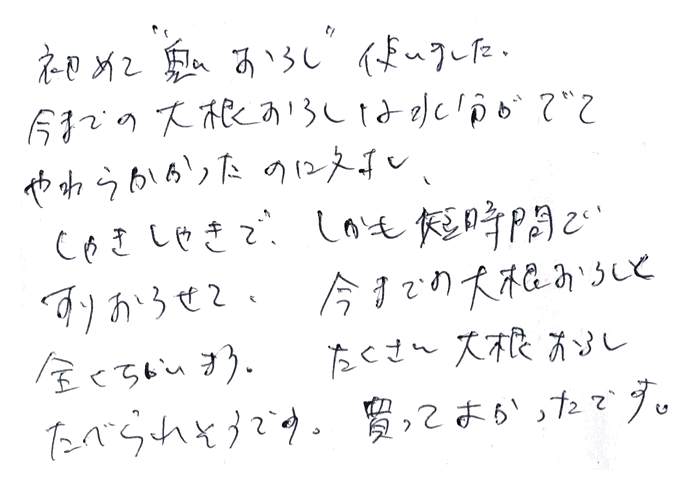 初めて"鬼おろし"使いました。
今までの大根おろしは水分がでて
やわらかかったのに対し、
しゃきしゃきで、しかも短時間で
すりおろせて、今までの大根おろしと
全くちがいます。たくさん大根おろし
たべられそうです。買ってよかったです。